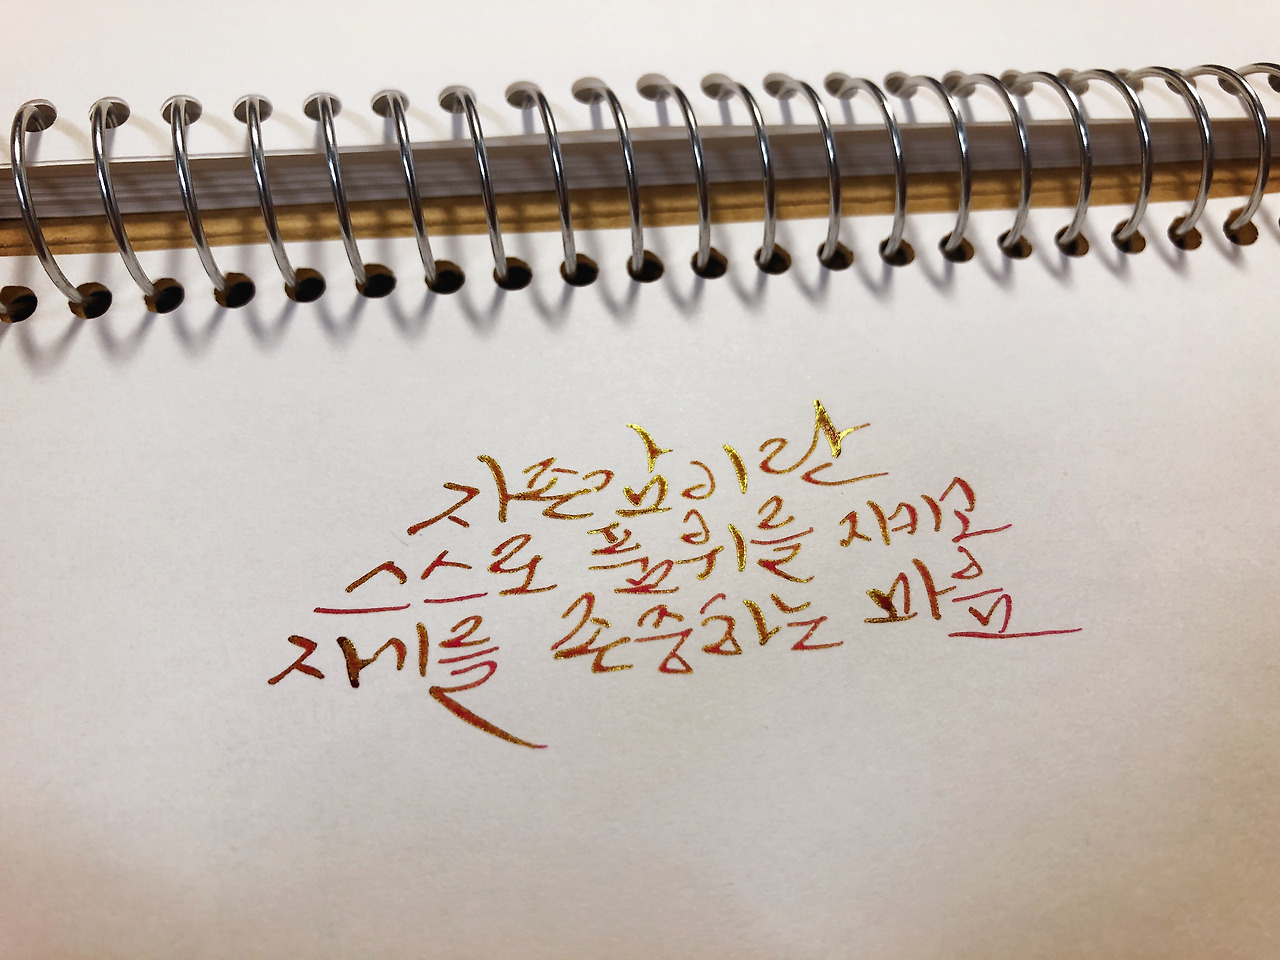 자존감이란
스스로 품위를 지키고
자기를 존중하는 마음